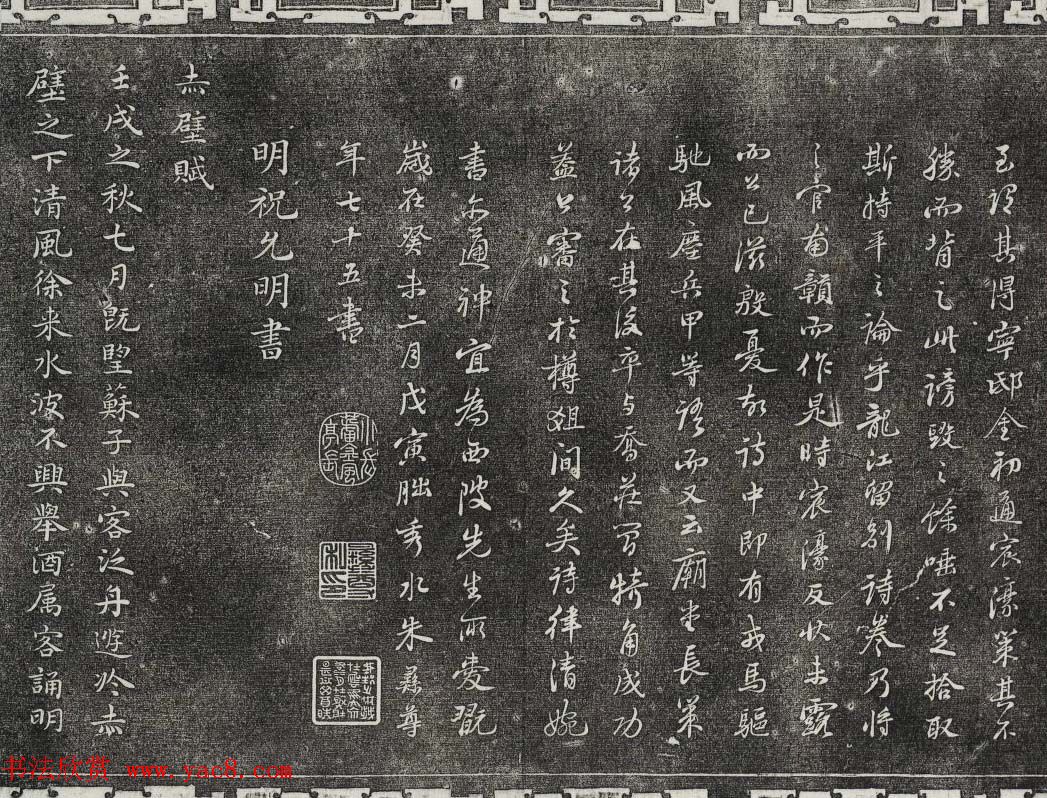 至謂其得寧邸金初通宸濠策其不
勝而背之此謗毀之餘唾不足拾取
斯持平之論乎龍江留別詩卷乃將
之官南贛而作是時宸濠反狀未露
而公已滋殷憂故詩中即有戎馬驅
馳風塵兵甲等語而又云廟堂長策
諸公在其後卒与喬莊簡犄角成功
蓋公審之於樽俎間久矣詩律清婉
書亦通神宜為西陂先生所愛翫
歲在癸未二月戊寅朏秀水朱彝尊
年七十五書
明祝允明書
赤壁賦
壬戌之秋七月既望蘇子與客泛舟遊於赤
壁之下清風徐来水波不興舉酒属客誦明
书法欣赏 www.yac8.com